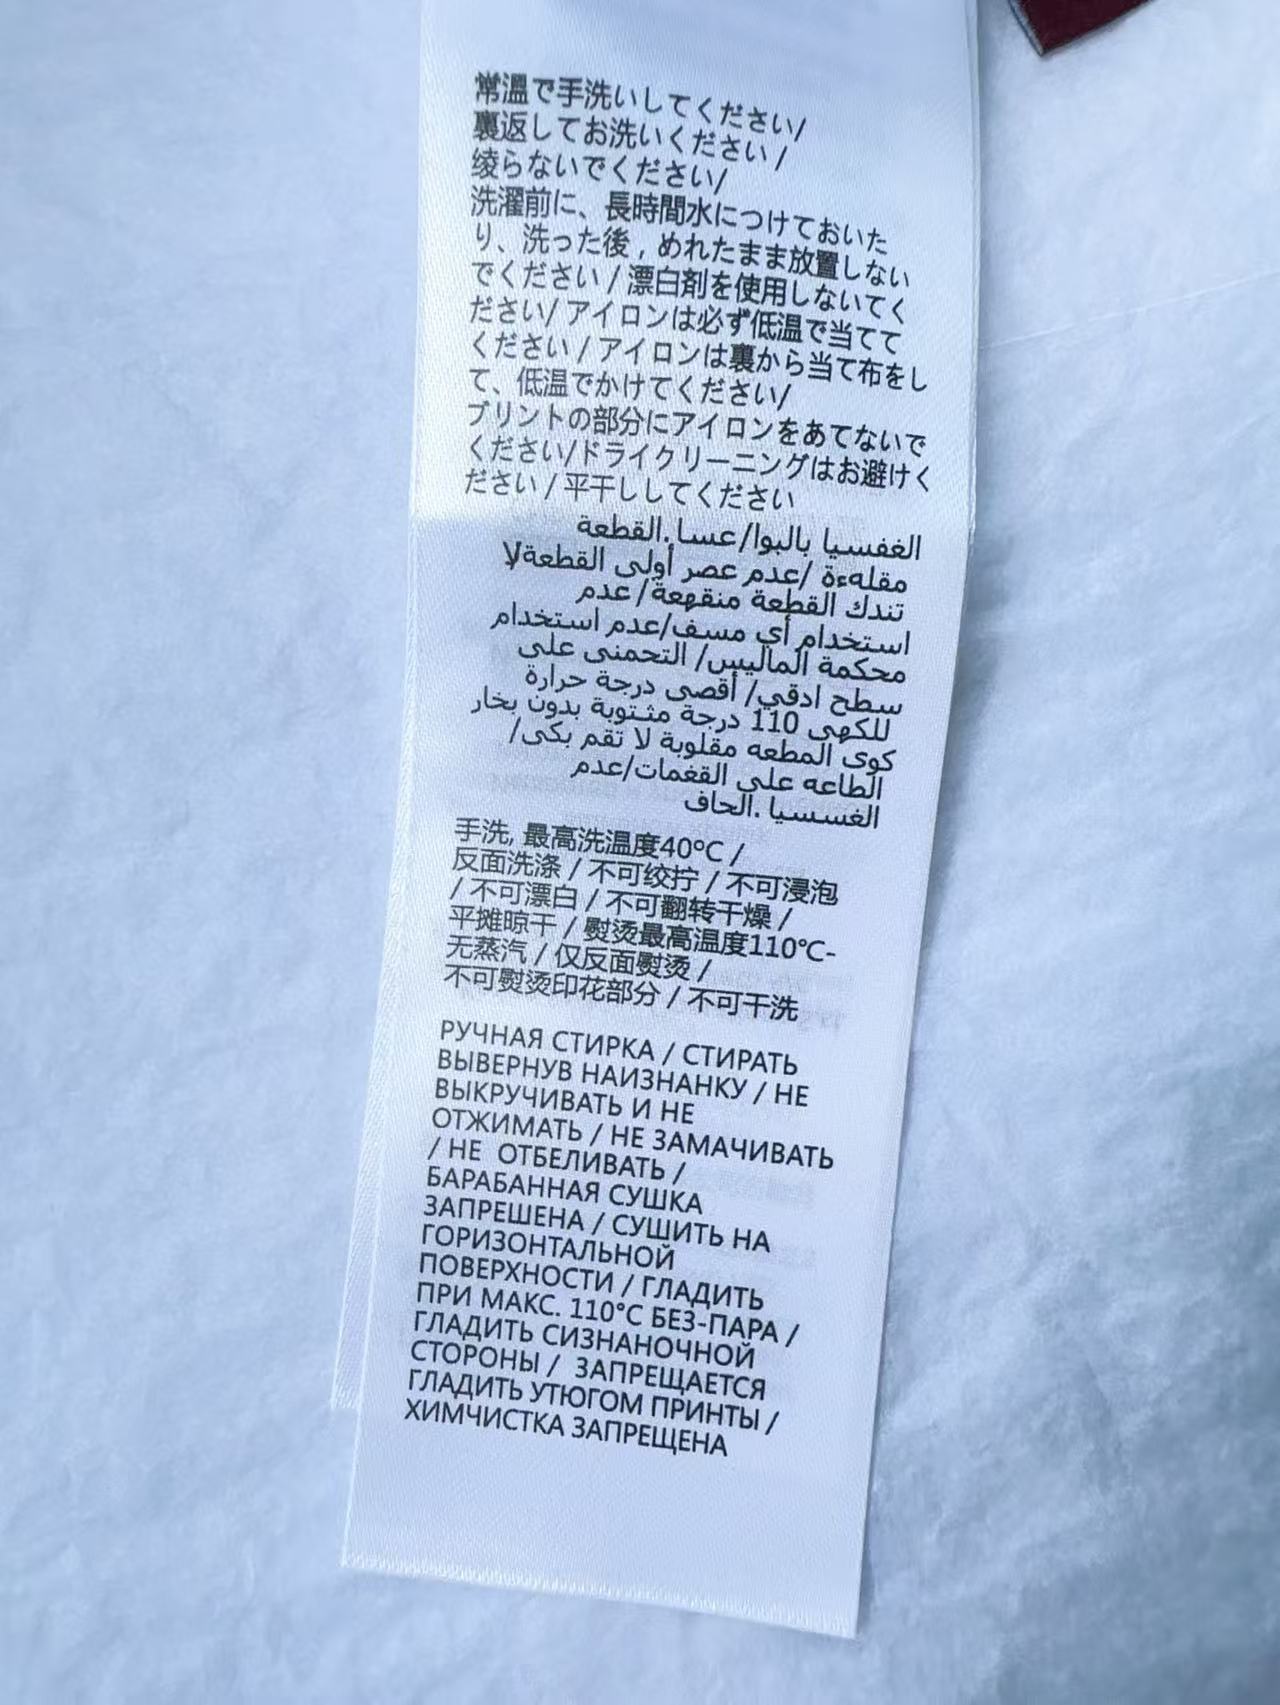 常温で手洗いしてください/
裏返してお洗いください /
绫らないでください/
洗濯前に、長時間水につけておいた
り、洗った後 , めれたまま放置しない
でください / 漂白剤を使用しないてく
ださい/ アイロンは必ず低温で当てて
ください / アイロンは裏から当て布をし
て、低温でかけてください/
プリントの部分にアイロンをあてないで
ください/ドライクリーニングはお避けく
ださい / 平干ししてください
الغفسيا بالبوا/عسا.القطعة
مقلهءة /عدم عصر أولى القطعةلا
تندك القطعة منقهعة/عدم
استخدام أي مسف/عدم استخدام
محكمة الماليس/ التحمنى على
سطح ادقي/ أقصى درجة حرارة
للكهى 110 درجة مئتوية بدون بخار
كوى المطعه مقلوبة لا تقم بكى/
الطاعه على القغمات/عدم
الغسسيا .الحاف
手洗, 最高洗温度40°C /
反面洗涤 / 不可绞拧 / 不可浸泡
/ 不可漂白 / 不可翻转干燥 /
平摊晾干 / 熨烫最高温度110°C-
无蒸汽 / 仅反面熨烫 /
不可熨烫印花部分 / 不可干洗
РУЧНАЯ СТИРКА / СТИРАТЬ
ВЫВЕРНУВ НАИЗНАНКУ / НЕ
ВЫКРУЧИВАТЬ И НЕ
ОТЖИМАТЬ / НЕ ЗАМАЧИВАТЬ
/ НЕ ОТБЕЛИВАТЬ /
БАРАБАННАЯ СУШКА
ЗАПРЕШЕНА / СУШИТЬ НА
ГОРИЗОНТАЛЬНОЙ
ПОВЕРХНОСТИ / ГЛАДИТЬ
ПРИ МАКС. 110°C БЕЗ-ПАРА /
ГЛАДИТЬ СИЗНАНОЧНОЙ
СТОРОНЫ / ЗАПРЕЩАЕТСЯ
ГЛАДИТЬ УТЮГОМ ПРИНТЫ /
ХИМЧИСТКА ЗАПРЕЩЕНА